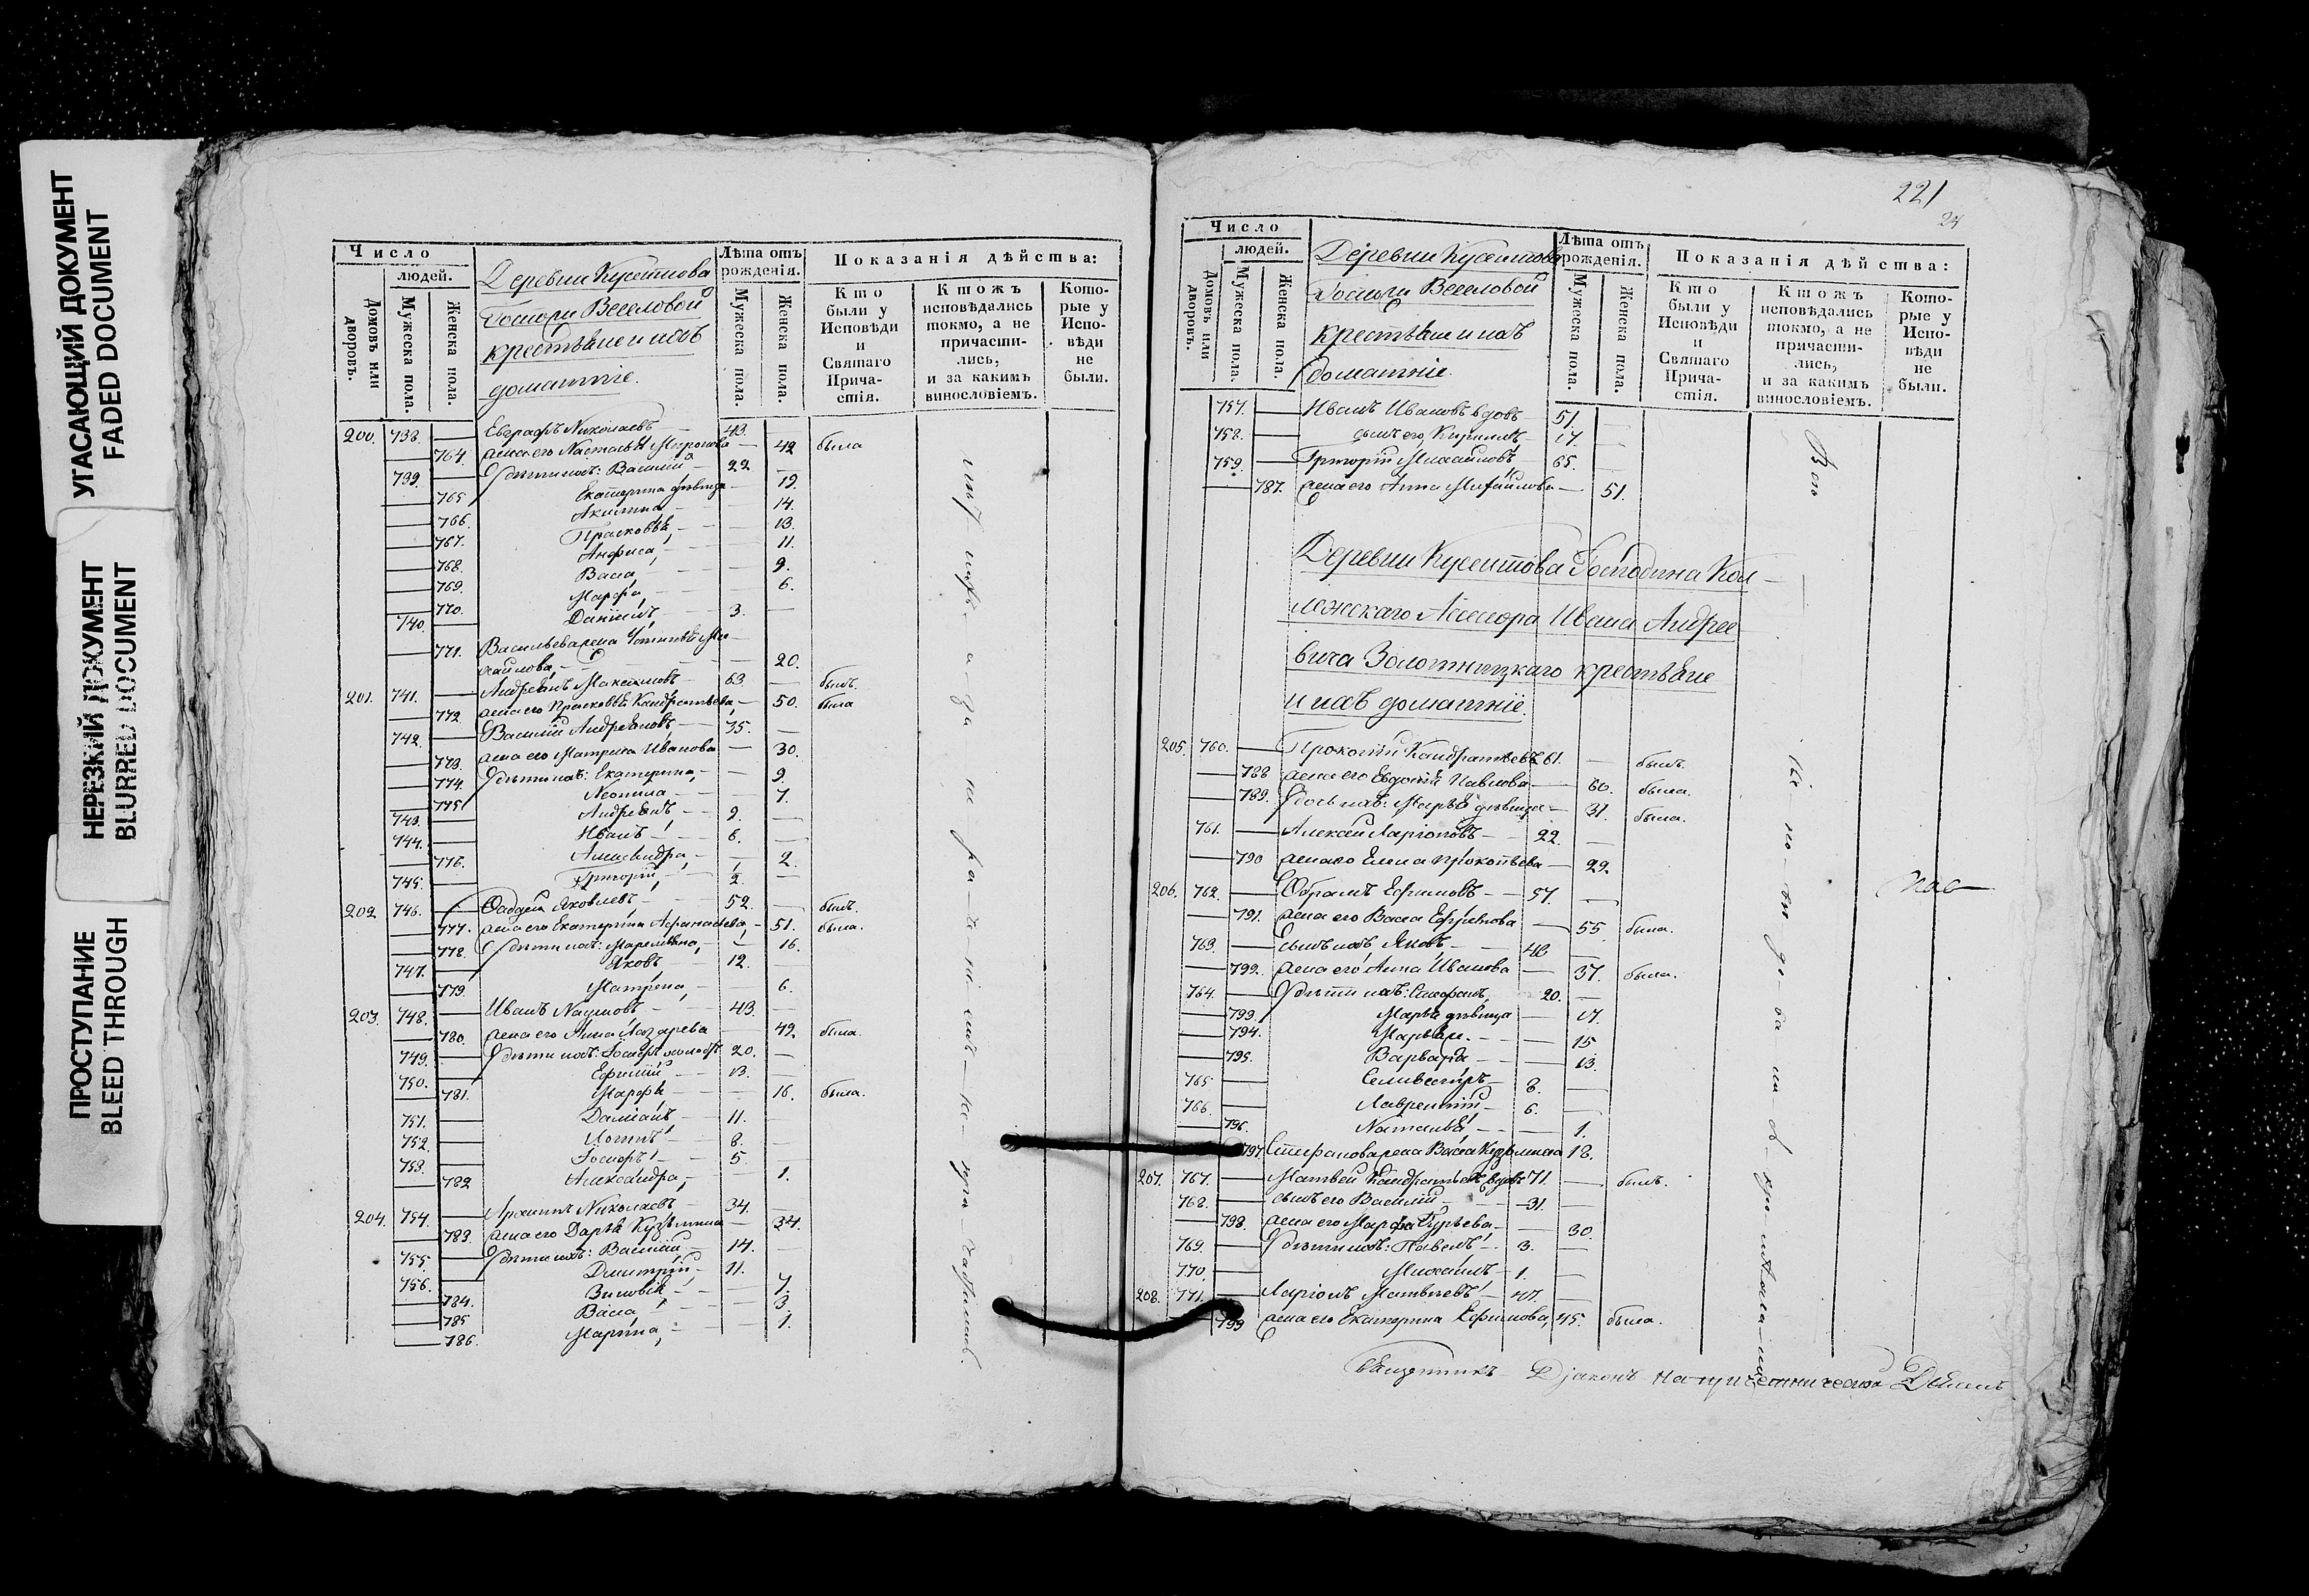 УГАСАЮЩИЙ ДОКУМЕНТ
FADED DOCUMENT
НЕРЕЗКИЙ ДОКУМЕНТ
BLURRED DOCUMENT
ПРОСТУПАНИЕ
BLEED THROUGH
Число
людей.
Домовъ или дворовъ.
Мужеска пола.
Женска пола.
Деревни Кусеитова
Госпожи Веселовой
крестьяне и ихъ
домашніе.
Лѣта отъ рожденія.
Мужеска пола.
Женска пола.
Показанія дѣйства:
Кто были у Исповѣди и Святаго Причастія.
Ктожъ исповѣдались токмо, а не причастились, и за какимъ винословіемъ.
Которые у Исповѣди не были.
200. 738. Евграфъ Николаевъ 43.
764. жена его Настасья Миронова 42 была
739. дѣти ихъ: Василій 22
765 Екатерина дѣвица 19.
766. Акилина 14.
767. Прасковья, 13.
768. Анфиса, 11.
769. Васса, 9.
770. Марфа, 6.
740. Даніилъ 3.
771. Васильева жена Устинья Ми-
хайлова, 20.
201. 741. Андреянъ Максимовъ 63. былъ.
772. жена его Прасковья Кандратьева, 50. была
742. Василій Андреяновъ, 35.
773. жена его Матрена Иванова 30.
774. дѣти ихъ: Екатерина, 9.
775. Неонила 7.
743. Андреянъ, 9.
744. Иванъ 6.
776. Александра, 2.
745. Григорій, 2.
202 746. Фаддей Яковлевъ, 52. былъ.
777. жена его Екатерина Афанасьева, 51. была.
778. дѣти ихъ: Маремьяна, 16.
747. Яковъ 12.
779. Матрена, 6.
203. 748. Иванъ Наумовъ 43.
780. жена его Анна Лазарева 42. была.
749. дѣти ихъ: Іосифъ 20.
750. Ефимій 13.
781. Марфа 16. была.
751. Даміанъ 11.
752. Логинъ 8.
753. 5.
782 Александра, 1.
204. 754. Архипъ Николаевъ 34.
783. жена его Дарья Кузьмина 34.
755. дѣти ихъ: Василій 14.
756. Дмитрій 11.
784. Зиновія, 7.
785 Васса, 3.
786. Марина, 1.
221
24
Число
людей.
Домовъ или дворовъ.
Мужеска пола.
Женска пола.
Деревни Кусеитова
Госпожи Веселовой
крестьяне и ихъ
домашніе.
Лѣта отъ рожденія.
Мужеска пола.
Женска пола.
Показанія дѣйства:
Кто были у Исповѣди и Святаго Причастія.
Ктожъ исповѣдались токмо, а не причастились, и за какимъ винословіемъ.
Которые у Исповѣди не были.
757. Иванъ Ивановъ вдовъ 51.
758. сынъ его, Кириллъ 17.
759. Григорій Михайловъ 65.
787. жена его Анна Михайлова 51.
Деревни Кусеитова Господина Кол-
лежскаго Асессора Ивана Андрее
вича Золотницкаго крестьяне
и ихъ домашніе.
205. 760. Прокопій Кандратьевъ 61. былъ.
788 жена его Евдокія Павлова 60. была.
789. дочь ихъ: Марья дѣвица 31. была.
761. Алексѣй Ларіоновъ 22.
790 жена его Елена Прокопьева 22.
206. 762. Абрамъ Ефимовъ 57.
791. жена его Васса Ефремова 55 была.
763. сынъ ихъ, Яковъ 40
792. жена его, Анна Иванова 37. была.
764. дѣти ихъ: Стефанъ, 20.
793. Марья дѣвица 17.
794. 15
795. Варвара 13.
765 Селивестръ 8.
766. Лаврентій 6.
796. Наталья, 1.
797. Стефанова жена Васса Кузьмина 18.
207. 767. Матвей Кандратьевъ вдовъ 71. былъ.
768. сынъ его Василій 31.
798. жена его Марфа Гурьева 30.
769. дѣти ихъ: Павелъ 3.
770. Михаилъ 1.
208. 771. Ларіонъ Матвѣевъ 47.
799 жена его Екатерина Ефимова, 45. была.